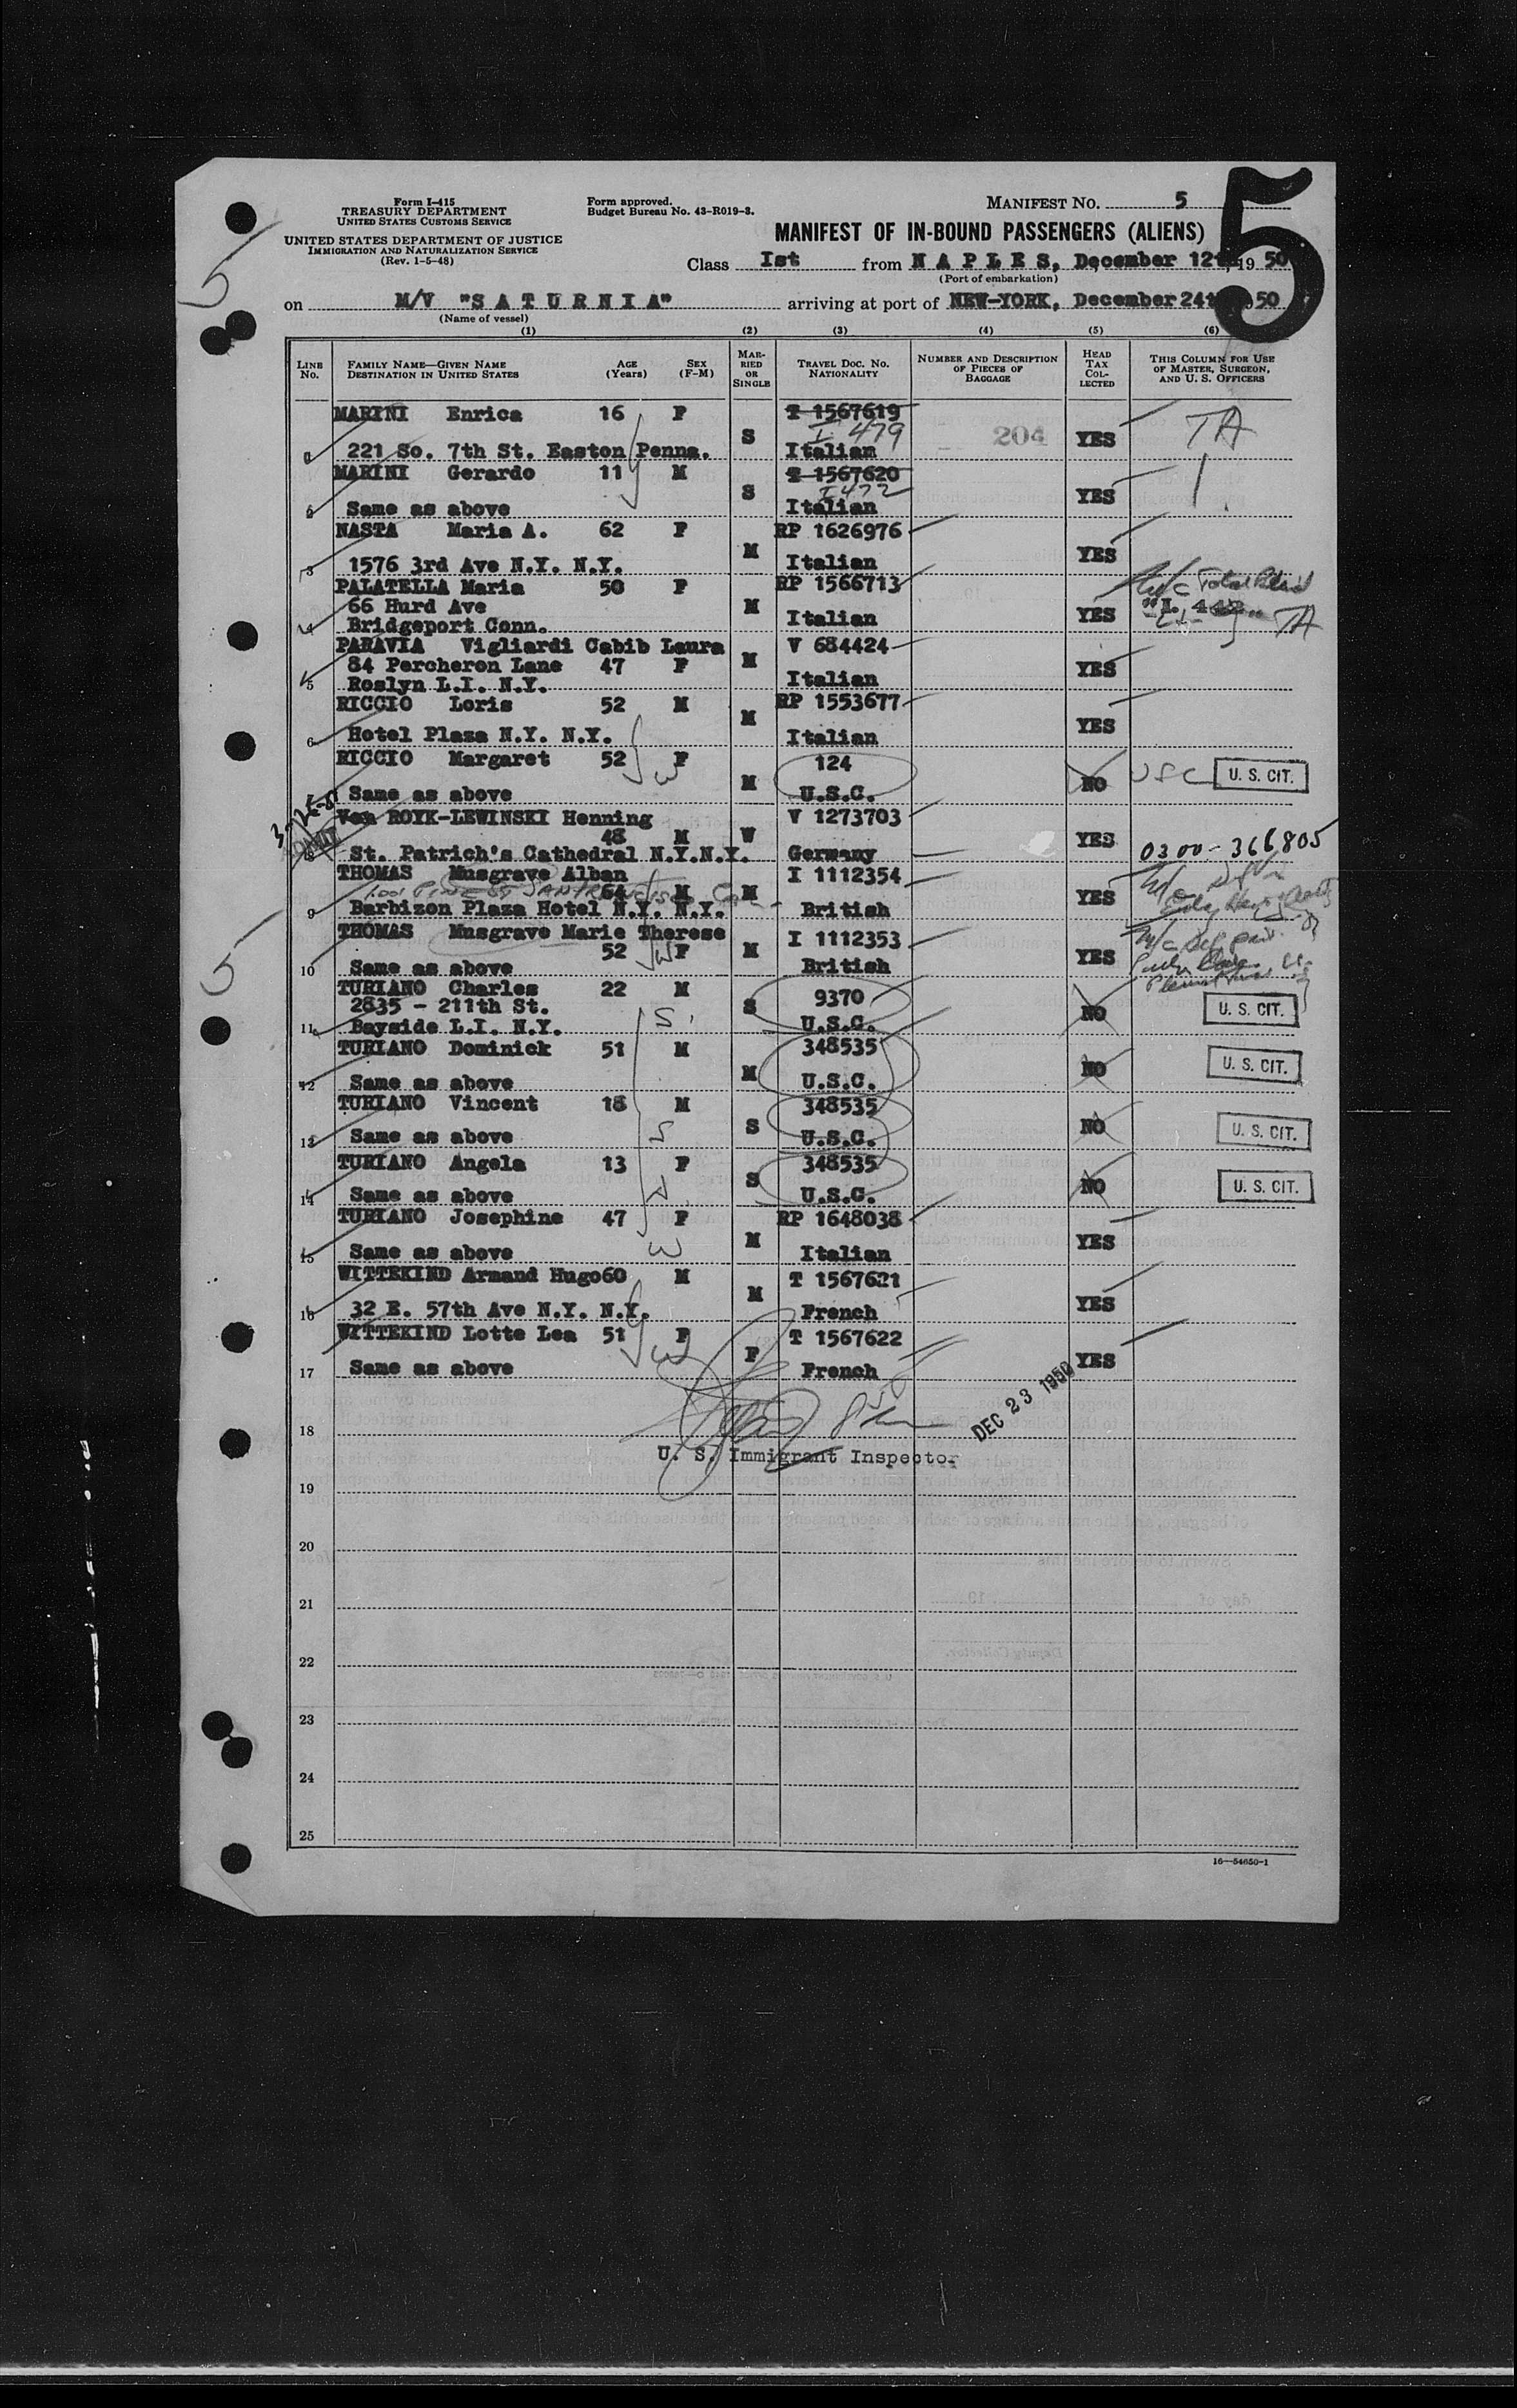 Form I-415
TREASURY DEPARTMENT
UNITED STATES CUSTOMS SERVICE
UNITED STATES DEPARTMENT OF JUSTICE
IMMIGRATION AND NATURALIZATION SERVICE
(Rev. 1-5-48)
Form approved.
Budget Bureau No. 43-R019-3.
MANIFEST NO. 5
5
MANIFEST OF IN-BOUND PASSENGERS (ALIENS)
Class Ist from N A P L E S, December 12th, 19 50
(Port of embarkation)
on M/V "S A T U R N I A" arriving at port of NEW-YORK, December 24th 50
(Name of vessel)
(1) (2) (3) (4) (5) (6)
LINE NO. FAMILY NAME—GIVEN NAME DESTINATION IN UNITED STATES AGE (Years) SEX (F-M) MARRIED OR SINGLE TRAVEL DOC. NO. NATIONALITY NUMBER AND DESCRIPTION OF PIECES OF BAGGAGE HEAD TAX COLLECTED THIS COLUMN FOR USE OF MASTER, SURGEON, AND U. S. OFFICERS
MARINI Enrica 16 F S T 1567619 I 479 204 YES TA
221 So. 7th St. Easton Penna. Italian
MARINI Gerardo 11 M S T 1567620 I 472 YES
Same as above Italian
NASTA Maria A. 62 F M RP 1626976 YES
3 1576 3rd Ave N.Y. N.Y. Italian
PALATELLA Maria 50 F M RP 1566713 YES TA
66 Hurd Ave
4 Bridgeport Conn. Italian
PARAVIA Vigliardi Cabib Laura V 684424
84 Percheron Lane 47 F M YES
5 Roslyn L.I. N.Y. Italian
RICCIO Loris 52 M M RP 1553677 YES
6 Hotel Plaza N.Y. N.Y. Italian
RICCIO Margaret 52 F M 124 NO USC U. S. CIT.
W
Same as above U.S.C.
Von ROYK-LEWINSKI Henning V 1273703
48 M W YES 0300-366805
St. Patrich's Cathedral N.Y.N.Y. Germany
THOMAS Musgrave Alban I 1112354
64 M M YES
9 Barbizon Plaza Hotel N.Y. N.Y. British
THOMAS Musgrave Marie Therese I 1112353
52 W F M YES
10 Same as above British
TURIANO Charles 22 M S 9370 NO U. S. CIT.
2835 - 211th St. S.
11 Bayside L.I. N.Y. U.S.C.
TURIANO Dominick 51 M M 348535 NO U. S. CIT.
12 Same as above U.S.C.
TURIANO Vincent 18 M S 348535 NO U. S. CIT.
13 Same as above S U.S.C.
TURIANO Angela 13 F S 348535 NO U. S. CIT.
14 Same as above U.S.C.
TURIANO Josephine 47 F M RP 1648038 YES
15 Same as above W Italian
WITTEKIND Armand Hugo 60 M M T 1567621 YES
16 32 E. 57th Ave N.Y. N.Y. French
WITTEKIND Lotte Lea 51 F F T 1567622 YES
W
17 Same as above French
DEC 23 1950
18
U. S. Immigrant Inspector
19
20
21
22
23
24
25
16—54650-1